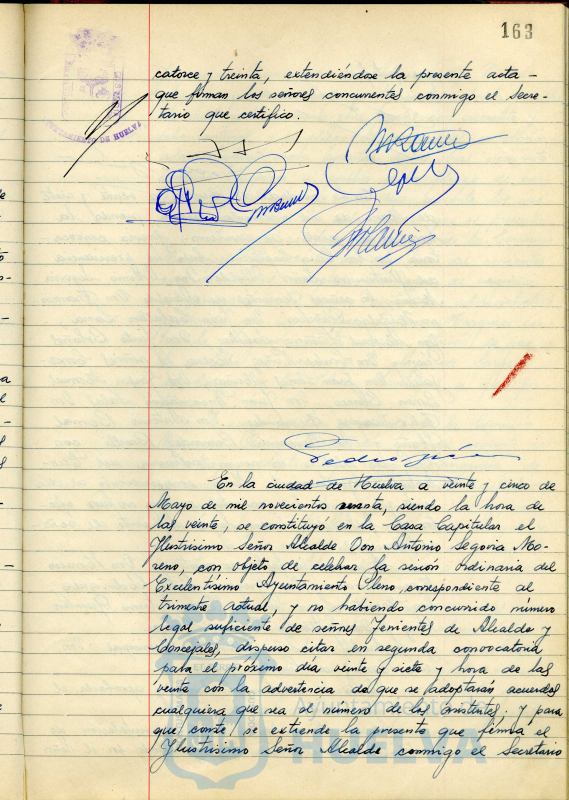 163
AYUNTAMIENTO DE HUELVA
catorce y treinta, extendiéndose la presente acta -
que firman los señores concurrentes conmigo el Secre-
tario que certifico.
En la ciudad de Huelva a veinte y cinco de
Mayo de mil novecientos sesenta, siendo la hora de
las veinte, se constituyó en la Casa Capitular el
Ilustrisimo Señor Alcalde Don Antonio Segovia Mo-
reno, con objeto de celebrar la sesión ordinaria del
Excelentísimo Ayuntamiento Pleno, correspondiente al
trimestre actual, y no habiendo concurrido número
legal suficiente de señores Tenientes de Alcalde y
Concejales, dispuso citar en segunda convocatoria
para el próximo día veinte y siete y hora de las
veinte con la advertencia de que se adoptarán acuerdos
cualquiera que sea el número de los asistentes. Y para
que conste se extiende la presente que firma el
Ilustrisimo Señor Alcalde conmigo el Secretario
HUELVA